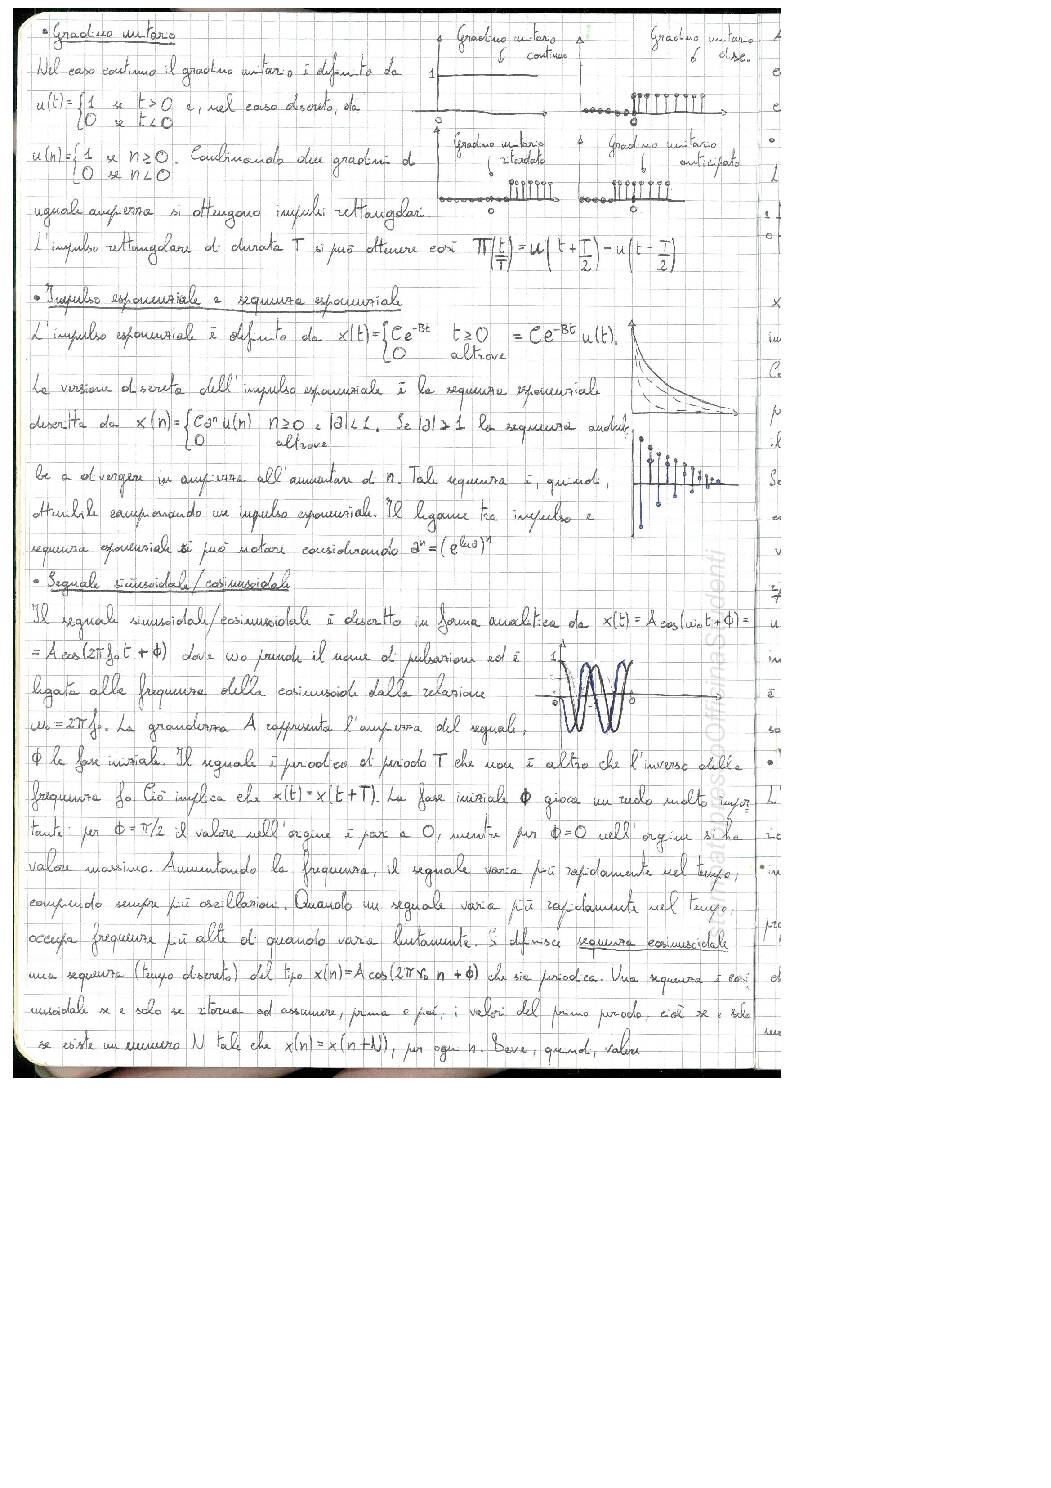 • Gradino unitario
Gradino unitario continuo
Gradino unitario disc.
Nel caso continuo il gradino unitario è definito da
1
u(t)={1 se t>0 e, nel caso discreto, da
0 se t<0
0
0
Gradino unitario ritardato
Gradino unitario anticipato
u(n)={1 se n≥0. Combinando due gradini di
0 se n<0
0
0
uguale ampiezza si ottengono impulsi rettangolari.
L'impulso rettangolare di durata T si può ottenere così Π(t/T)=u(t+T/2)-u(t-T/2)
• Impulso esponenziale e sequenza esponenziale
L'impulso esponenziale è definito da x(t)={Ce^-Bt t≥0 = Ce^-Bt u(t).
0 altrove
La versione discreta dell'impulso esponenziale è la sequenza esponenziale
descritta da x(n)={Ca^n u(n) n≥0 e |a|<1. Se |a|>1 la sequenza andreb
0 altrove
be a divergere in ampiezza all'aumentare di n. Tale sequenza è, quindi,
ottenibile campionando un impulso esponenziale. Il legame tra impulso e
sequenza esponenziale si può notare considerando a^n=(e^lna)^n
• Segnale sinusoidale/cosinusoidale
Il segnale sinusoidale/cosinusoidale è descritto in forma analitica da x(t)=A cos(ω₀t+ϕ)=
=A cos(2πf₀t+ϕ) dove ω₀ prende il nome di pulsazione ed è
1
0
legata alla frequenza della cosinusoide dalla relazione
ω₀=2πf₀. La grandezza A rappresenta l'ampiezza del segnale,
ϕ la fase iniziale. Il segnale è periodico di periodo T che non è altro che l'inverso della
frequenza f₀. Ciò implica che x(t)=x(t+T). La fase iniziale ϕ gioca un ruolo molto impor
tante: per ϕ=π/2 il valore nell'orgine è pari a 0, mentre per ϕ=0 nell'orgine si ha
valore massimo. Aumentando la frequenza, il segnale varia più rapidamente nel tempo,
compiendo sempre più oscillazioni. Quando un segnale varia più rapidamente nel tempo,
occupa frequenze più alte di quando varia lentamente. Si definisce sequenza cosinusoidale
una sequenza (tempo discreto) del tipo x(n)=A cos(2πν₀ n+ϕ) che sia periodica. Una sequenza è cosi
nusoidale se e solo se ritorna ad assumere, prima o poi, i valori del primo periodo, cioè se e solo
se esiste un numero N tale che x(n)=x(n+N), per ogni n. Deve, quindi, valere